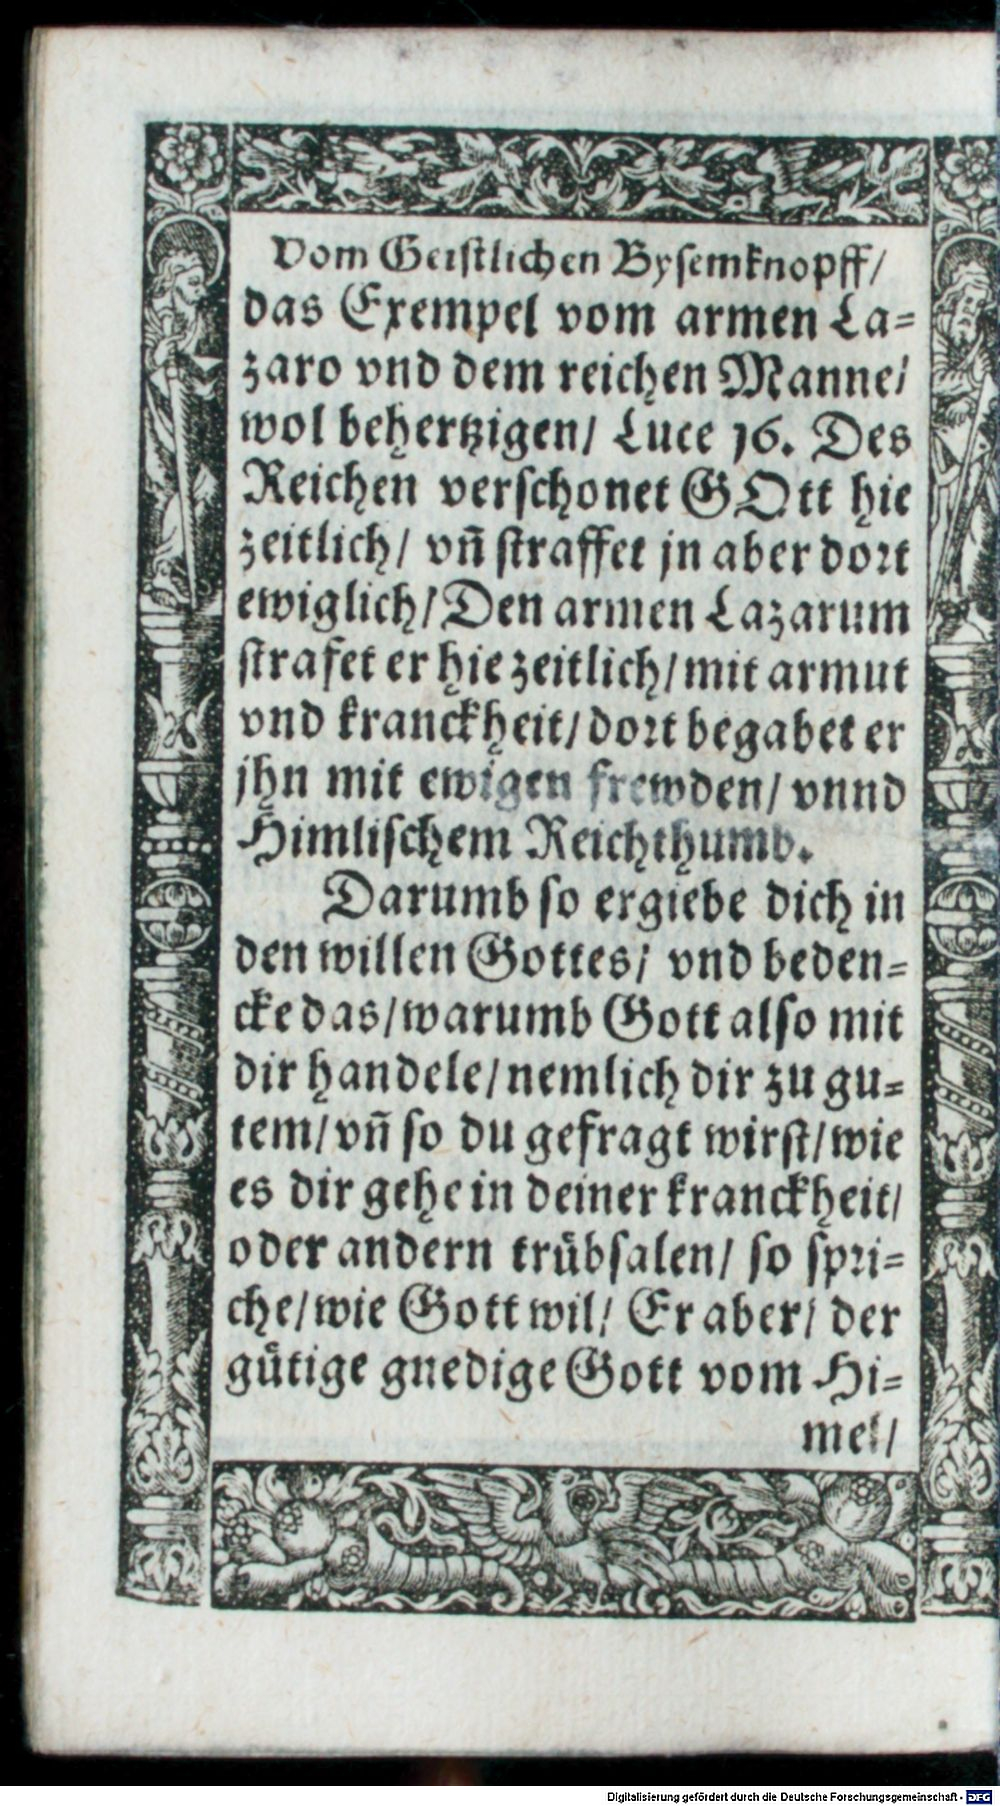 Vom Geistlichen Bysemknopff/
das Exempel vom armen La=
zaro vnd dem reichen Manne/
wol behertzigen/ Luce 16. Des
Reichen verschonet GOtt hie
zeitlich/ vn̄ straffet jn aber dort
ewiglich/ Den armen Lazarum
strafet er hie zeitlich/ mit armut
vnd kranckheit/ dort begabet er
jhn mit ewigen frewden/ vnnd
Himlischem Reichthumb.
Darumb so ergiebe dich in
den willen Gottes/ vnd beden=
cke das/ warumb Gott also mit
dir handele/ nemlich dir zu gu=
tem/ vn̄ so du gefragt wirst/ wie
es dir gehe in deiner kranckheit/
oder andern truͤbsalen/ so spri=
che/ wie Gott wil/ Er aber/ der
guͤtige gnedige Gott vom Hi=
mel/
Digitalisierung gefördert durch die Deutsche Forschungsgemeinschaft - DFG